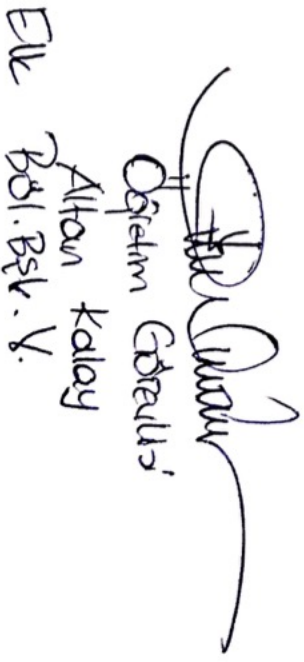 Öğretim Görevlisi
Altan Kalay
Elk Böl. Bşk. V.